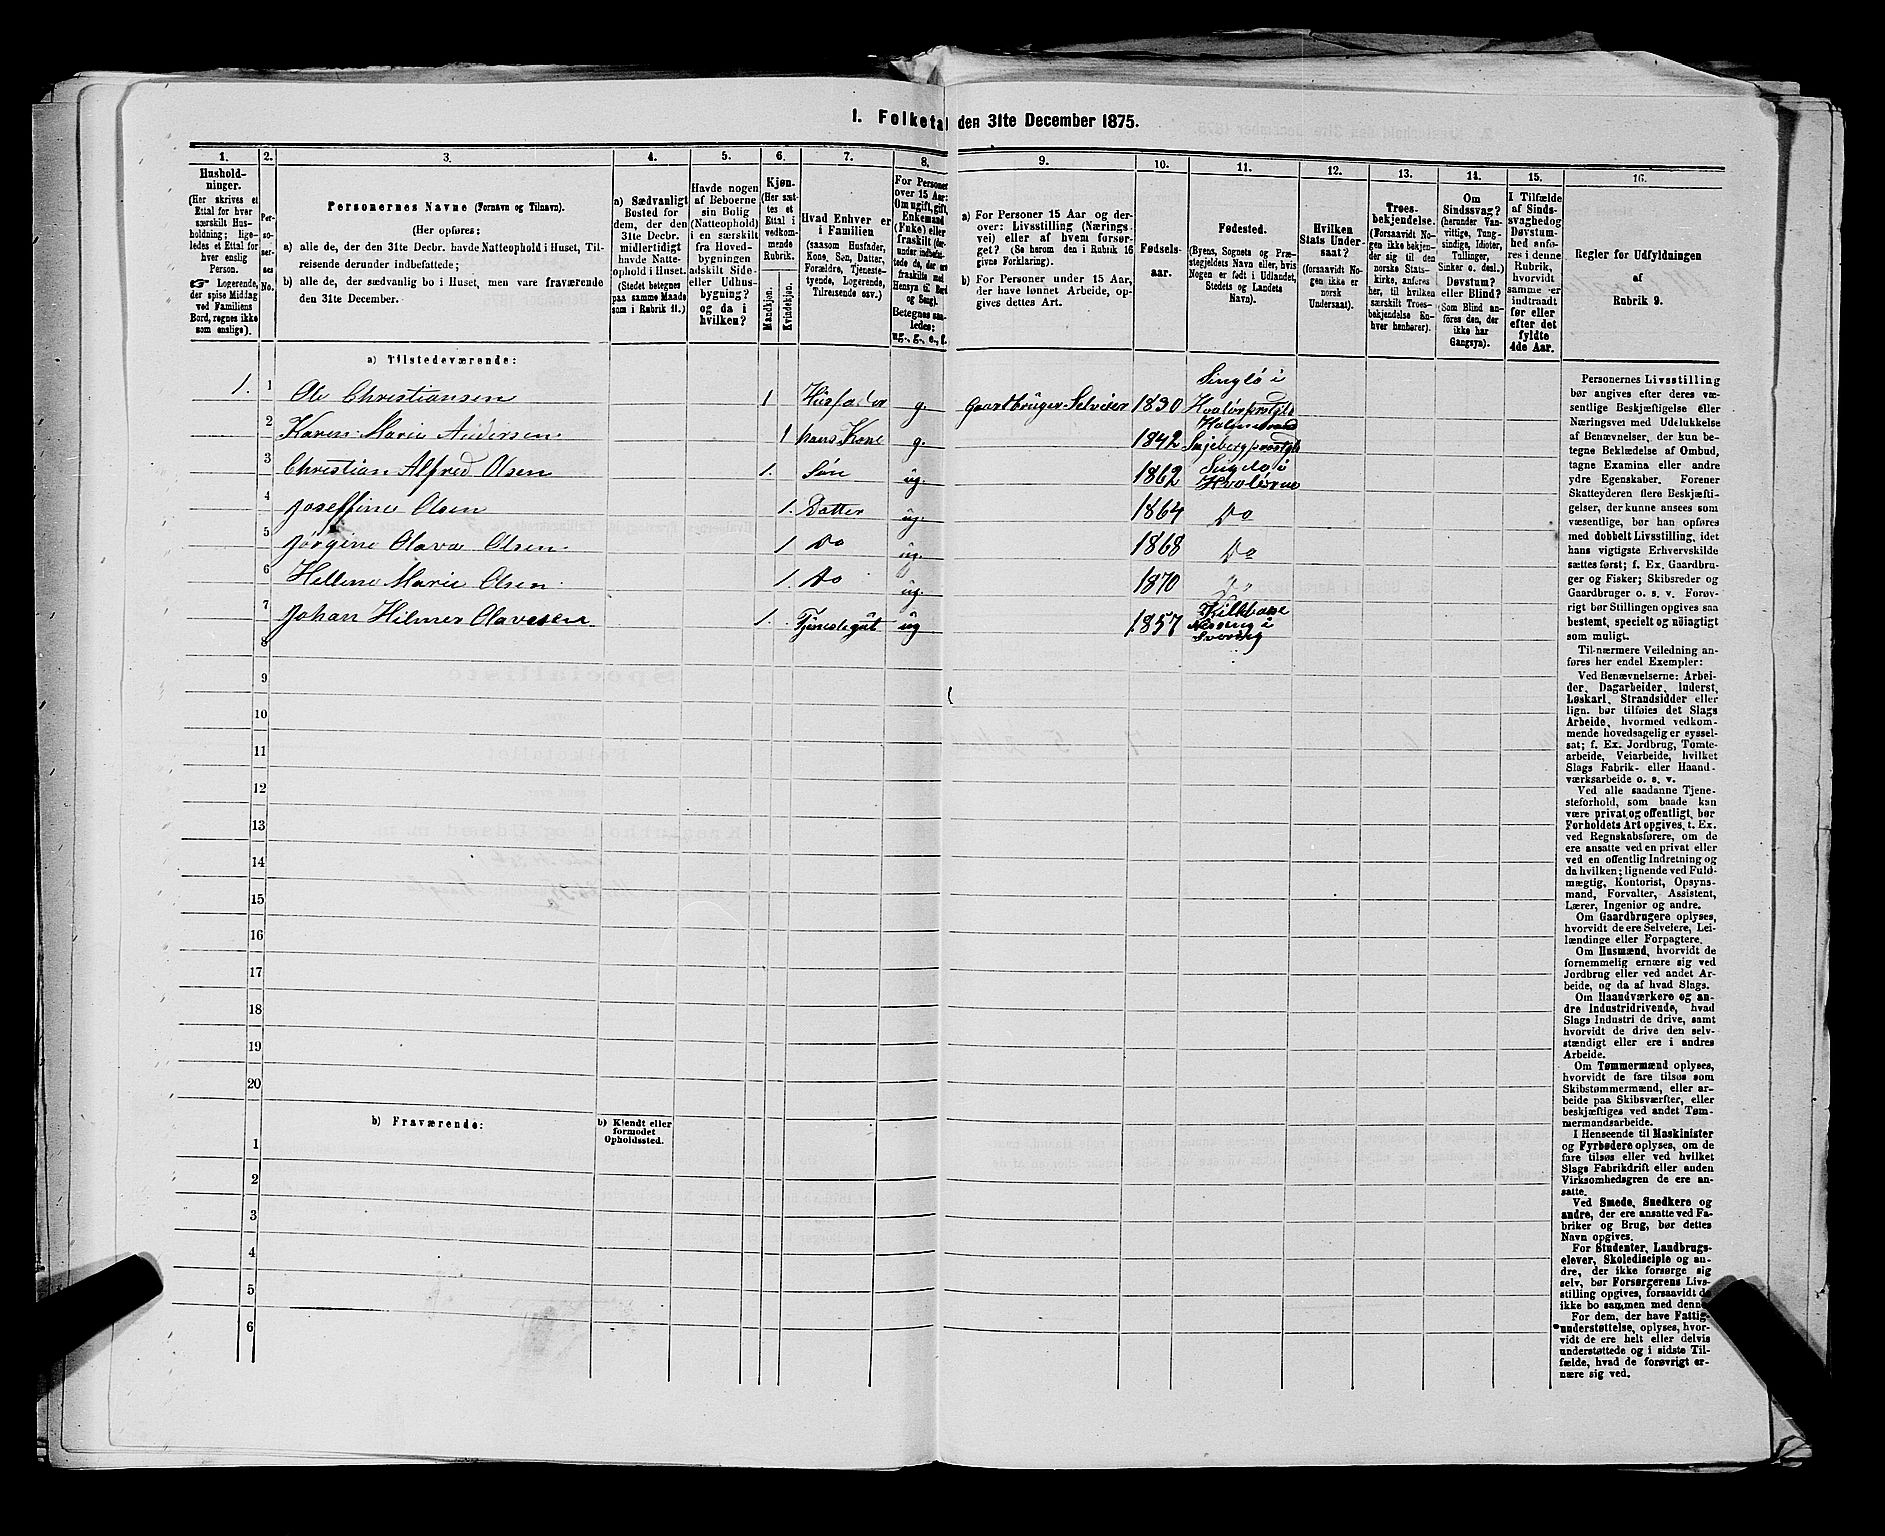 1. Folketal den 31te December 1875.
1.
Husholdninger.
(Her skrives et
Ettal for hver
særskilt Husholdning; ligeledes
et Ettal for
hver enslig
Person.
☞ Logerende,
der spise Middag
ved Familiens
Bord, regnes ikke
som enslige).
2.
Personernes No.
3.
Personernes Navne (Fornavn og Tilnavn).
(Her opføres:
a) alle de, der den 31te Decbr. havde Natteophold i Huset, Tilreisende
derunder indbefattede;
b) alle de, der sædvanlig bo i Huset, men vare fraværende
den 31te December.
4.
a) Sædvanligt
Bosted for
dem, der den
31te Decbr.
midlertidigt
havde Natteophold
i Huset.
(Stedet betegnes
paa samme Maade
som i Rubrik 11.)
5.
Havde nogen
af Beboerne
sin Bolig
(Natteophold)
i en særskilt
fra Hovedbygningen
adskilt Side-
eller Udhusbygning?
og da i
hvilken?
6.
Kjøn.
(Her sættes
et
Ettal i
vedkommende
Rubrik.
Mandkjøn.
Kvindekjøn.
7.
Hvad Enhver er
i Familien
(saasom Husfader,
Kone, Søn, Datter,
Forældre, Tjenestetyende,
Logerende,
Tilreisende osv.)
8.
For Personer
over 15 Aar:
Om ugift, gift,
Enkemand
(Enke) eller
fraskilt
Betegnes saaledes:
ug., g., e., f.
9.
a) For Personer 15 Aar og derover:
Livsstilling (Næringsvei)
eller af hvem forsørget?
(Se herom den i Rubrik 16
givne Forklaring).
b) For Personer under 15 Aar,
der have lønnet Arbeide, opgives
dettes Art.
10.
Fødselsaar.
11.
Fødested.
(Byens, Sognets og Præstegjeldets
Navn eller, hvis
Nogen er født i Udlandet,
Stedets og Landets
Navn).
12.
Hvilken
Stats Undersaat?
(forsaavidt Nogen
ikke er
norsk
Undersaat).
13.
Troesbekjendelse.
(Forsaavidt Nogen
ikke bekjender
sig til den
norske Statskirke,
anføres
her, til hvilken
særskilt Troesbekjendelse
Enhver
henhører).
14.
Om
Sindssvag?
(herunder Vanvittige,
Tungsindige,
Idioter,
Tallinger,
Sinker o. desl.)
Døvstum?
eller Blind?
(Som Blind anføres
den, der
ikke har
Gangsyn).
15.
I Tilfælde
af Sindssvaghed
og
Døvstumhed
anføres
i denne
Rubrik,
hvorvidt
samme er
indtraadt
før eller
efter det
fyldte
4de Aar.
16.
Regler for Udfyldningen
af
Rubrik 9.
a) Tilstedeværende:
1. 1 Ole Christiansen 1 Husfader g. Gaardbruger Selveier 1830 Singlø i
2 Karen Marie Andersen 1 hans Kone g. 1842
3 Christian Alfred Olsen 1. Søn ug. 1862
4 Joseffine Olsen 1. Datter ug. 1864 Do
5 Jørgine Olava Olsen 1 Do ug. 1868 Do
6 Hellene Marie Olsen 1. Do ug. 1870 " "
7 Johan Hilmer Olavesen 1. Tjenestegut ug 1857
8
9
10
11
12
13
14
15
16
17
18
19
20
b) Fraværende:
b) Kjendt eller
formodet
Opholdssted.
1
2
3
4
5
6
Personernes Livsstilling
bør angives efter deres væsentlige
Beskjæftigelse eller
Næringsvei med Udelukkelse
af Benævnelser, der kun betegne
Beklædelse af Ombud,
tagne Examina eller andre
ydre Egenskaber. Forener
Skatteyderen flere Beskjæftigelser,
der kunne ansees som
væsentlige, bør han opføres
med dobbelt Livsstilling, idet
hans vigtigste Erhvervskilde
sættes først; f. Ex. Gaardbruger
og Fisker; Skibsreder og
Gaardbruger o. s. v. Forøvrigt
bør Stillingen opgives saa
bestemt, specielt og nöiagtigt
som muligt.
Til nærmere Veiledning anføres
her endel Exempler:
Ved Benævnelserne: Arbeider,
Dagarbeider, Inderst,
Løskarl, Strandsidder eller
lign. bør tilføies det Slags
Arbeide, hvormed vedkommende
hovedsagelig er sysselsat;
f. Ex. Jordbrug, Tomtearbeide,
Veiarbeide, hvilket
Slags Fabrik- eller Haandværksarbeide
o. s. v.
Ved alle saadanne Tjenesteforhold,
som baade kan
være privat og offentligt, bør
Forholdets Art opgives, t. Ex.
ved Regnskabsførere, om de
ere ansatte ved en privat eller
ved en offentlig Indretning og
da hvilken; lignende ved Fuldmægtig,
Kontorist, Opsynsmand,
Forvalter, Assistent,
Lærer, Ingeniør og andre.
Om Gaardbrugere oplyses,
hvorvidt de ere Selveiere, Leilændinge
eller Forpagtere.
Om Husmænd, hvorvidt de
fornemmelig ernære sig ved
Jordbrug eller ved andet Arbeide,
og da af hvad Slags.
Om Haandværkere og andre
Industridrivende, hvad
Slags Industri de drive, samt
hvorvidt de drive den selvstændigt
eller ere i andres
Arbeide.
Om Tømmermænd oplyses,
hvorvidt de fare tilsøs som
Skibstømmermænd, eller arbeide
paa Skibsværfter, eller
beskjæftiges ved andet Tømmermandsarbeide.
I Henseende til Maskinister
og Fyrbødere oplyses, om de
fare tilsøs eller ved hvilket
Slags Fabrikdrift eller anden
Virksomhedsgren de ere ansatte.
Ved Smede, Snedkere og
andre, der ere ansatte ved Fabriker
og Brug, bør dettes
Navn opgives.
For Studenter, Landbrugselever,
Skoledisciple og andre,
der ikke forsørge sig
selv, bør Forsørgerens Livsstilling
opgives, forsaavidt de
ikke bo sammen med denne.
For dem, der have Fattigunderstøttelse,
oplyses, hvorvidt
de ere helt eller delvis
understøttede og i sidste Tilfælde,
hvad de forøvrigt ernære
sig ved.